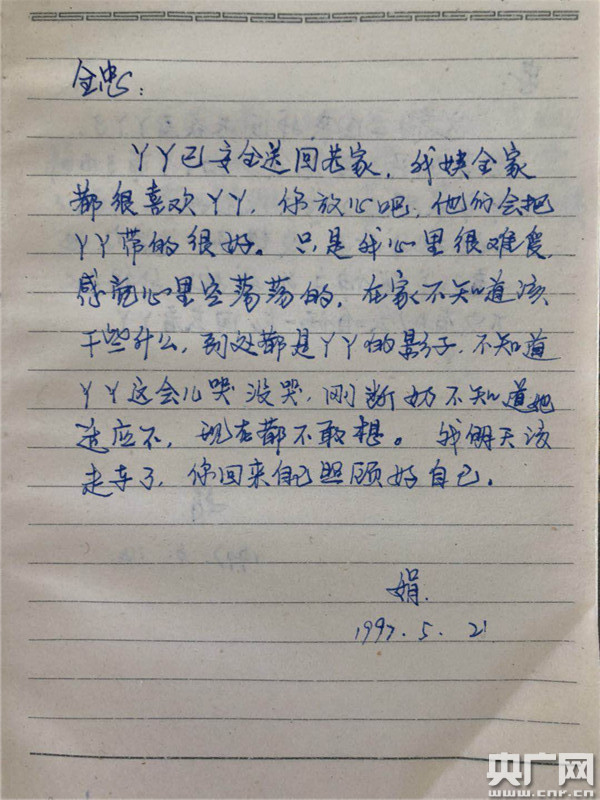 全忠:
丫丫已安全送回老家，我姨全家
都很喜欢丫丫，你放心吧，他们会把
丫丫带的很好。只是我心里很难受
感觉心里空荡荡的，在家不知道该
干些什么，到处都是丫丫的影子，不知道
丫丫这会儿哭没哭，刚断奶不知道她
适应不，现在都不敢想。我明天该
走车了，你回来自己照顾好自己。
娟.
1997.5.21
央广网
www.cnr.cn